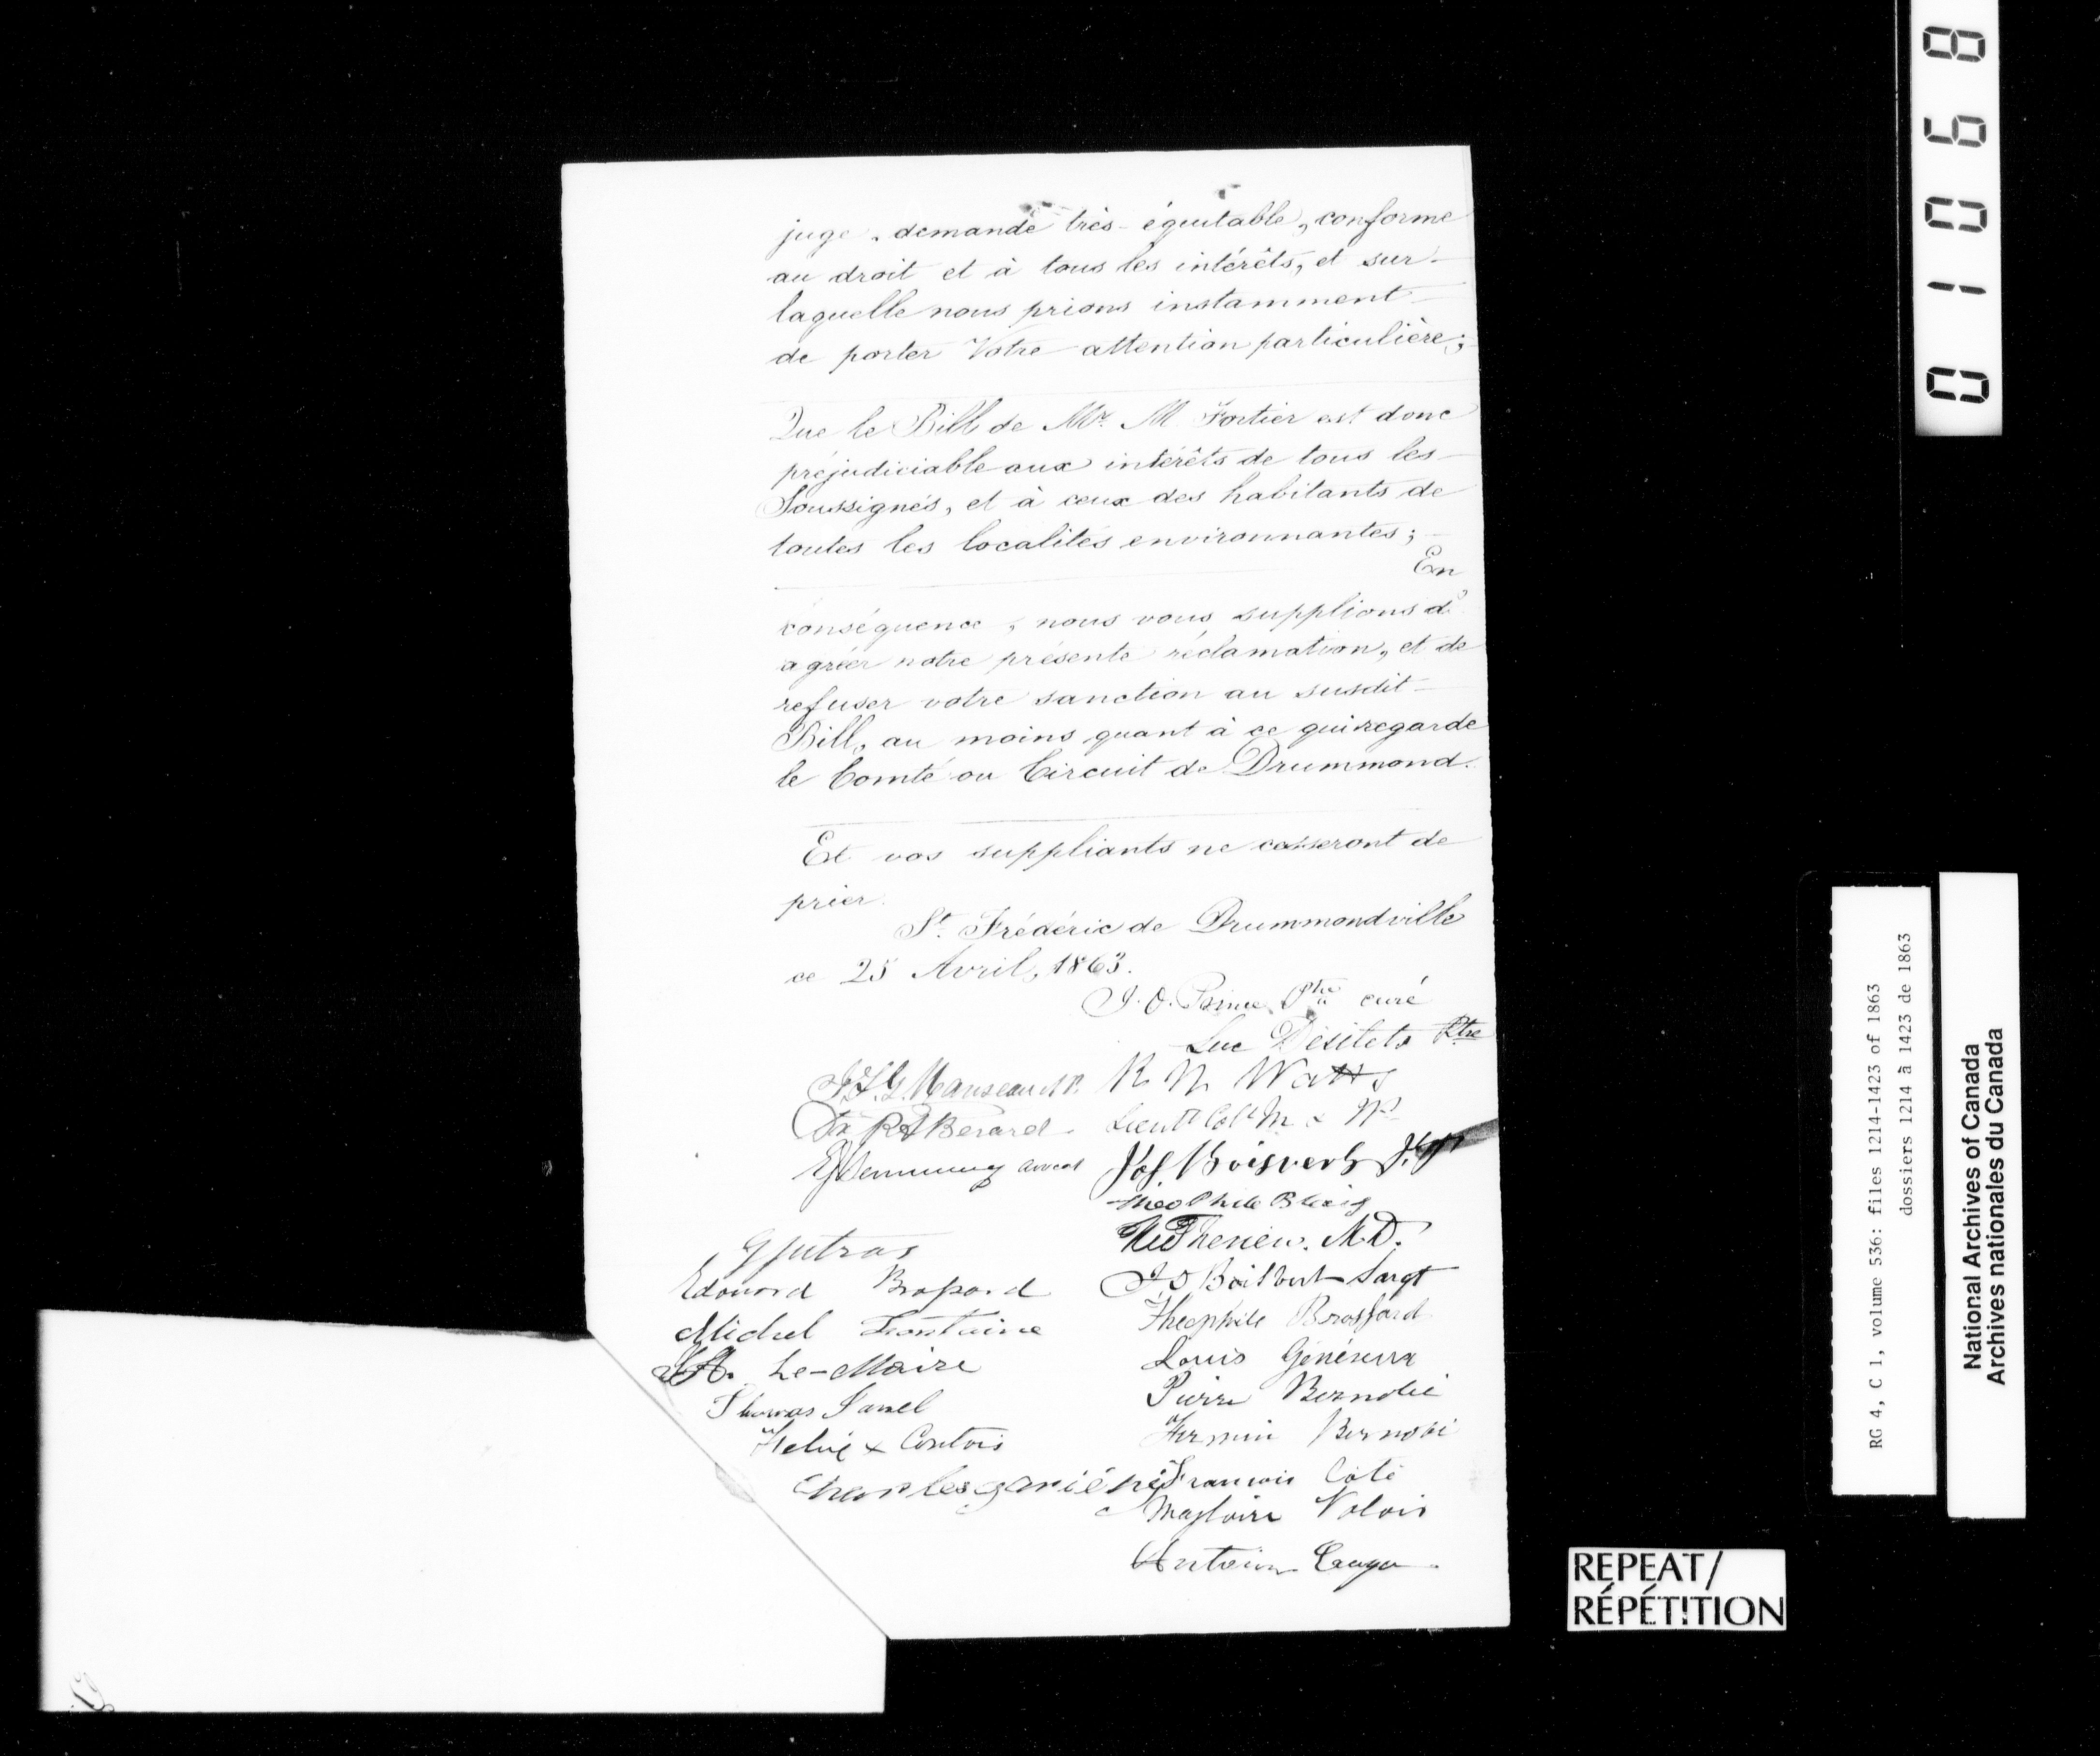 juge, demande très-équitable, conforme
au droit et à tous les intérêts, et sur-
laquelle nous prions instamment
de porter Votre attention particulière;
Que le Bill de Mr. M Fortier est donc
préjudiciable aux intérêts de tous les
Soussignés, et à ceux des habitants de
toutes les localités environnantes;
En
conséquence, nous vous supplions d'
agréer notre présente réclamation, et de
refuser votre sanction au susdit
Bill, au moins quant à ce qui regarde
le Comté ou Circuit de Drummond.
Et vos suppliants ne cesseront de
prier.
St. Frédéric de Drummondville
ce 25 Avril, 1863.
J. O. Prince Ptre curé
Luc Désilets Ptre
R. N. Watts
Lieut Col
Bérard
avocat
Jos. Boisvert
Théophile Blais
M.D.
G Jutras
Edouard
Sargt
Michel Fontaine
Théophile Brossard
Le-Maire
Louis
Thomas
Pierre
Firmin
Coutois
Charles
François Côté
Magloire Valois
Antoine
01068
RG 4, C 1, volume 536: files 1214-1423 of 1863
dossiers 1214 à 1423 de 1863
National Archives of Canada
Archives nationales du Canada
REPEAT/
RÉPÉTITION